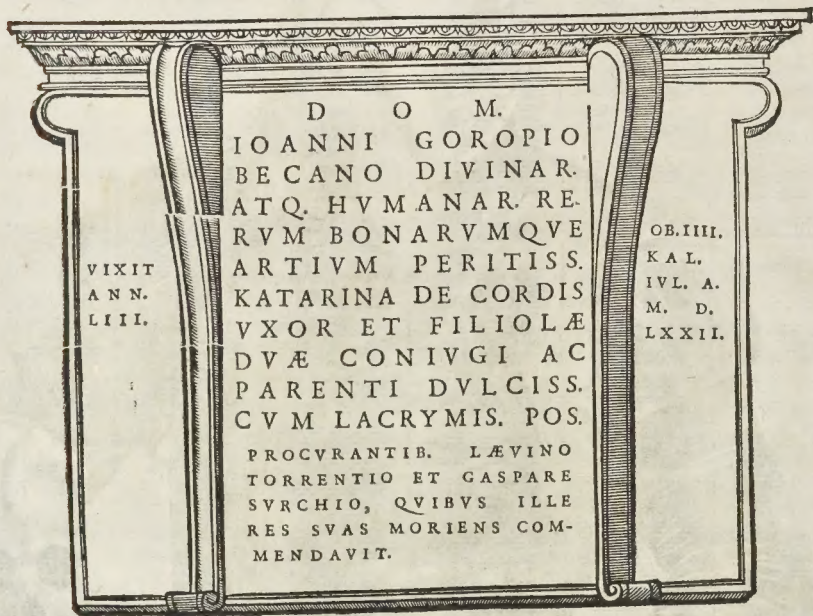 VIXIT
ANN.
LIII.
D O M.
IOANNI GOROPIO
BECANO DIVINAR.
ATQ. HVMANAR. RE-
RVM BONARVMQVE
ARTIVM PERITISS.
KATARINA DE CORDIS
VXOR ET FILIOLÆ
DVÆ CONIVGI AC
PARENTI DVLCISS.
CVM LACRYMIS. POS.
PROCVRANTIB. LÆVINO
TORRENTIO ET GASPARE
SVRCHIO, QVIBVS ILLE
RES SVAS MORIENS COM-
MENDAVIT.
OB. IIII.
KAL.
IVL. A.
M. D.
LXXII.